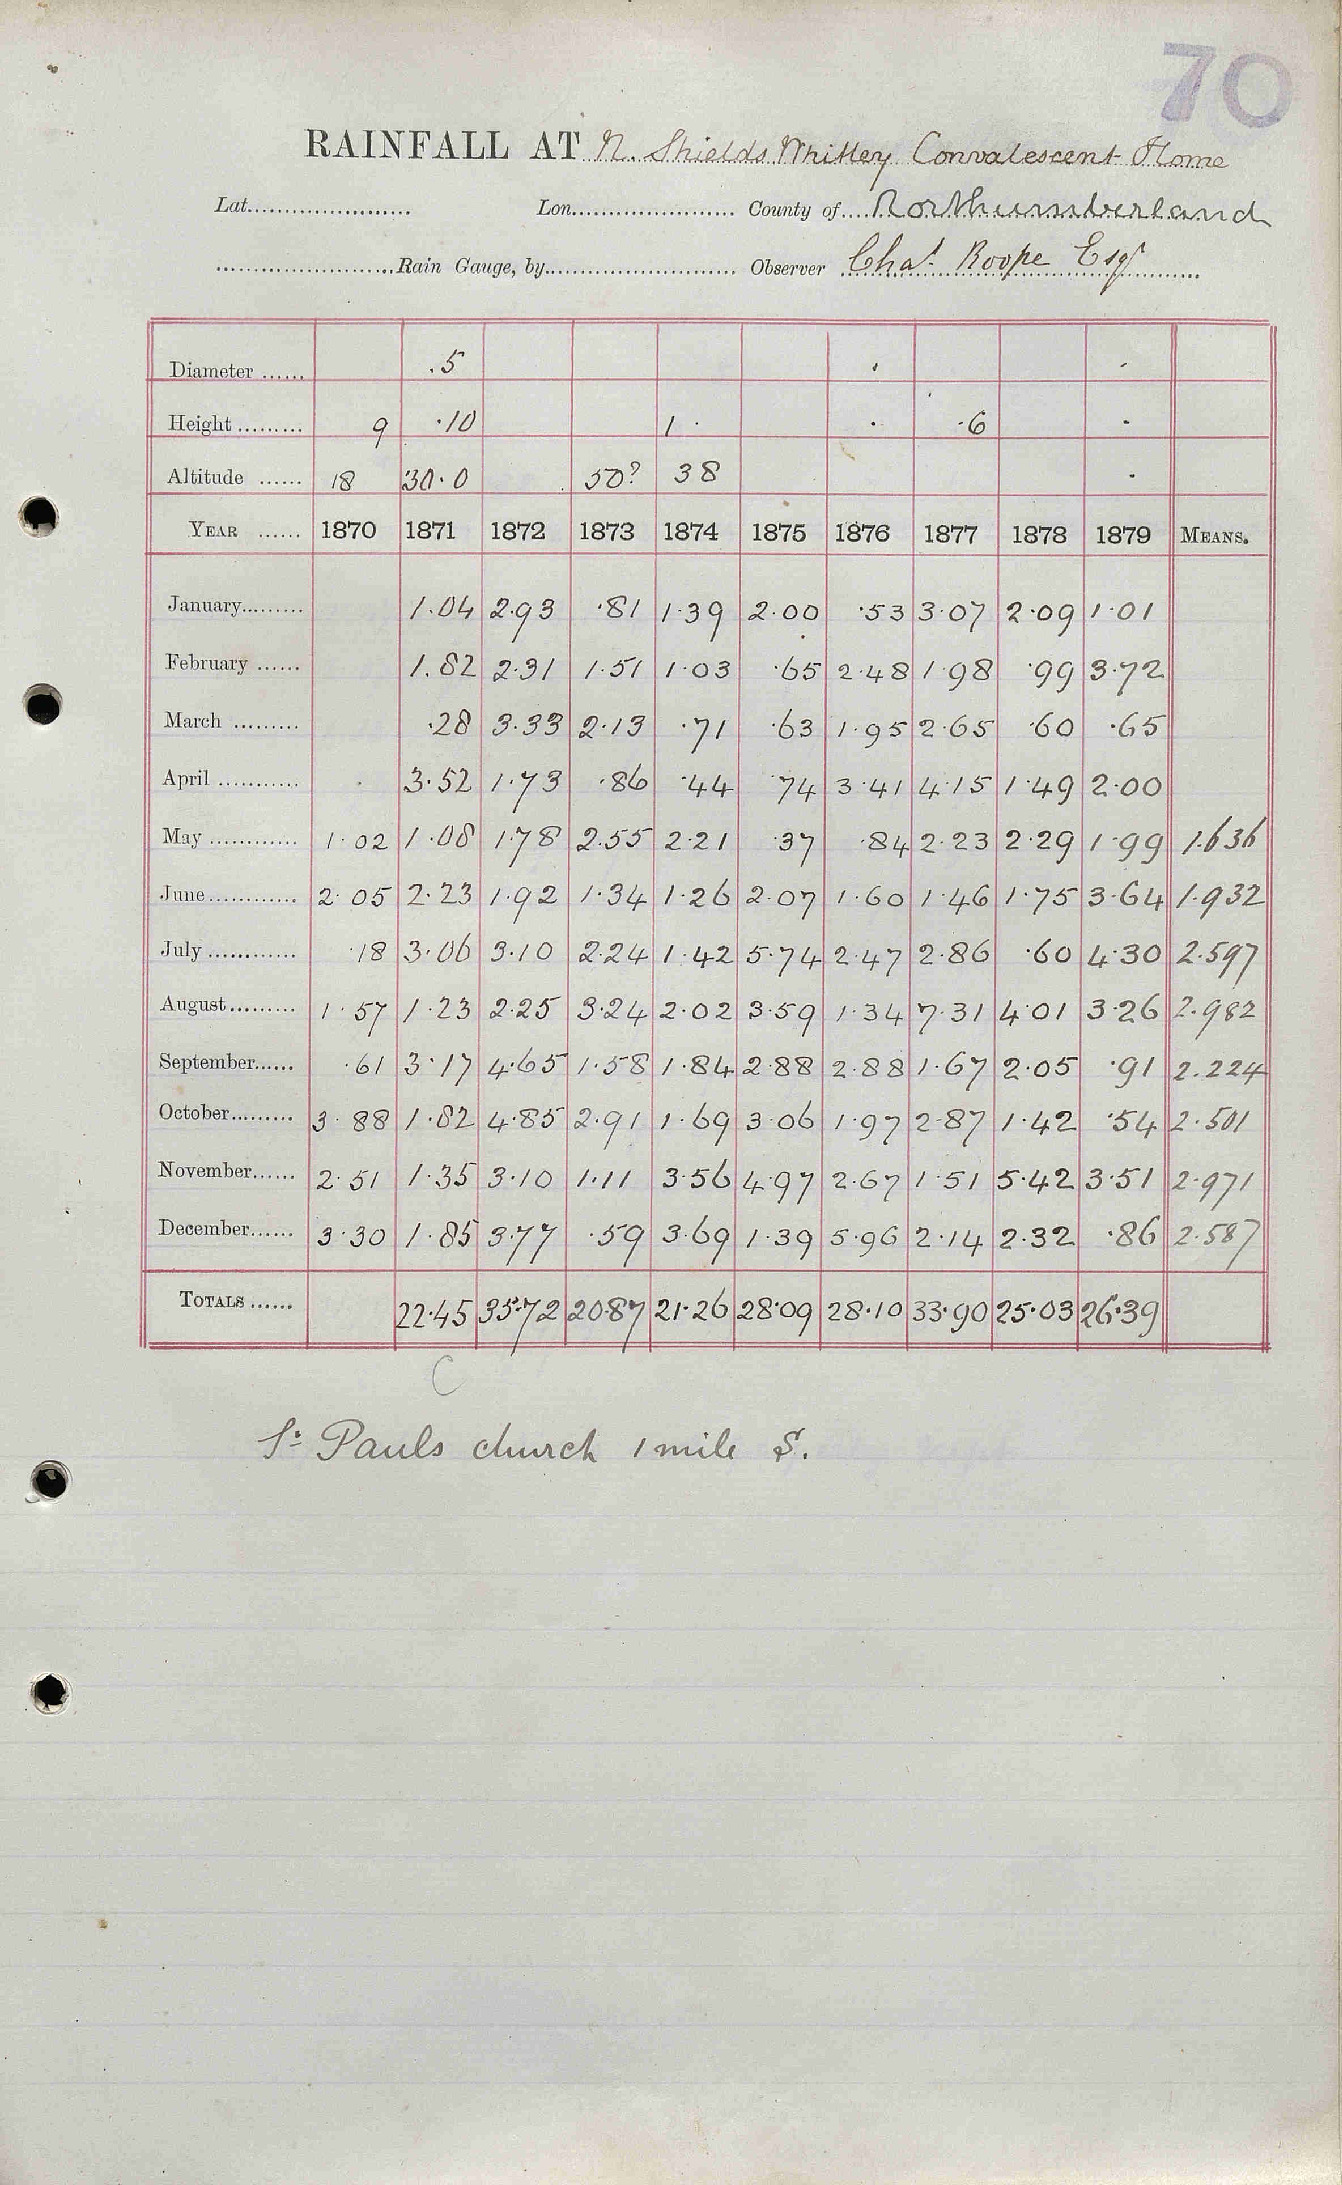 70
RAINFALL AT N. Shields Whitley Convalescent Home
Lat...................... Lon...................... County of.... Northumberland
........................Rain Gauge, by.......................... Observer Chas. Roope Esqr
Diameter ...... .5 · ·
Height ......... 9 ·10 1 · · ·6 ·
Altitude ...... 18 30·0 50? 38 ·
YEAR ...... 1870 1871 1872 1873 1874 1875 1876 1877 1878 1879 MEANS.
January......... 1.04 2·93 ·81 1·39 2·00 ·53 3·07 2·09 1·01
February ...... 1.82 2·31 1·51 1·03 ·65 2·48 1·98 ·99 3·72
March ......... ·28 3·33 2·13 ·71 ·63 1·95 2·65 ·60 ·65
April ............ 3·52 1·73 ·86 ·44 ·74 3·41 4·15 1·49 2·00
May ............ 1·02 1·08 1·78 2·55 2·21 ·37 ·84 2·23 2·29 1·99 1.636
June............ 2·05 2·23 1·92 1·34 1·26 2·07 1·60 1·46 1·75 3·64 1·932
July ............ ·18 3·06 3·10 2·24 1·42 5·74 2·47 2·86 ·60 4·30 2.597
August......... 1·57 1·23 2·25 3·24 2·02 3·59 1·34 7·31 4·01 3·26 2.982
September...... ·61 3·17 4·65 1·58 1·84 2·88 2·88 1·67 2·05 ·91 2.224
October......... 3·88 1·82 4·85 2·91 1·69 3·06 1·97 2·87 1·42 ·54 2·501
November...... 2·51 1·35 3·10 1·11 3·56 4·97 2·67 1·51 5·42 3·51 2·971
December...... 3·30 1·85 3·77 ·59 3·69 1·39 5·96 2·14 2·32 ·86 2·587
TOTALS ...... 22·45 35·72 20·87 21·26 28·09 28·10 33·90 25·03 26·39
C
St Pauls church 1 mile S.